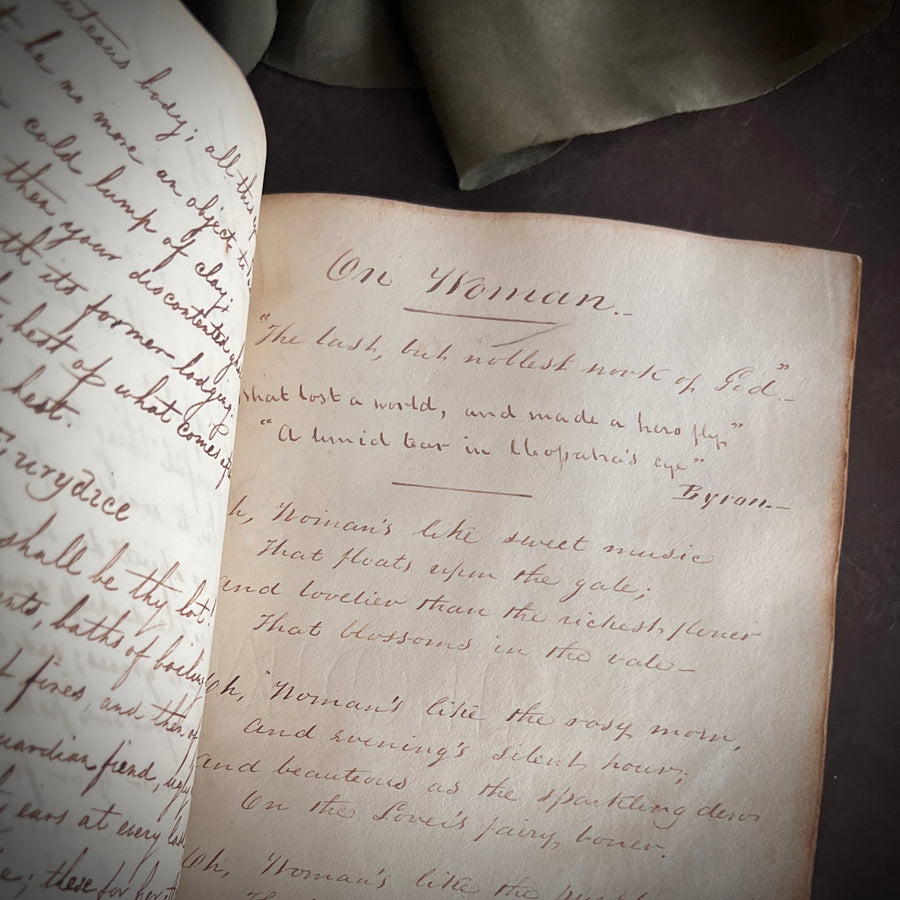 uteous body; all this
t be no more an object to
cold lump of clay;
then your discontented
th its former lodging.
best of what comes
best.
Eurydice
shall be thy lot!
ents, baths of boiling
t fires, and then
uardian fiend,
ears at every
e; these for her
On Woman.-
"The last, but noblest work of God."-
What lost a world, and made a hero fly,"
"A timid tear in Cleopatra's eye"
Byron.-
Oh, Woman's like sweet music
That floats upon the gale;
And lovelier than the richest flower
That blossoms in the vale-
Oh, Woman's like the rosy morn,
And evening's silent hour;
And beauteous as the sparkling dews
On the Love's fairy, bower.
Oh, Woman's like the